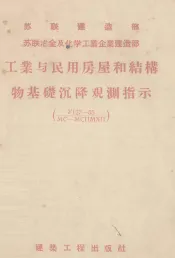 苏联建造部
苏联冶金及化学工業企業建造部
工業与民用房屋和結構
物基礎沉降观測指示
建築工程出版社